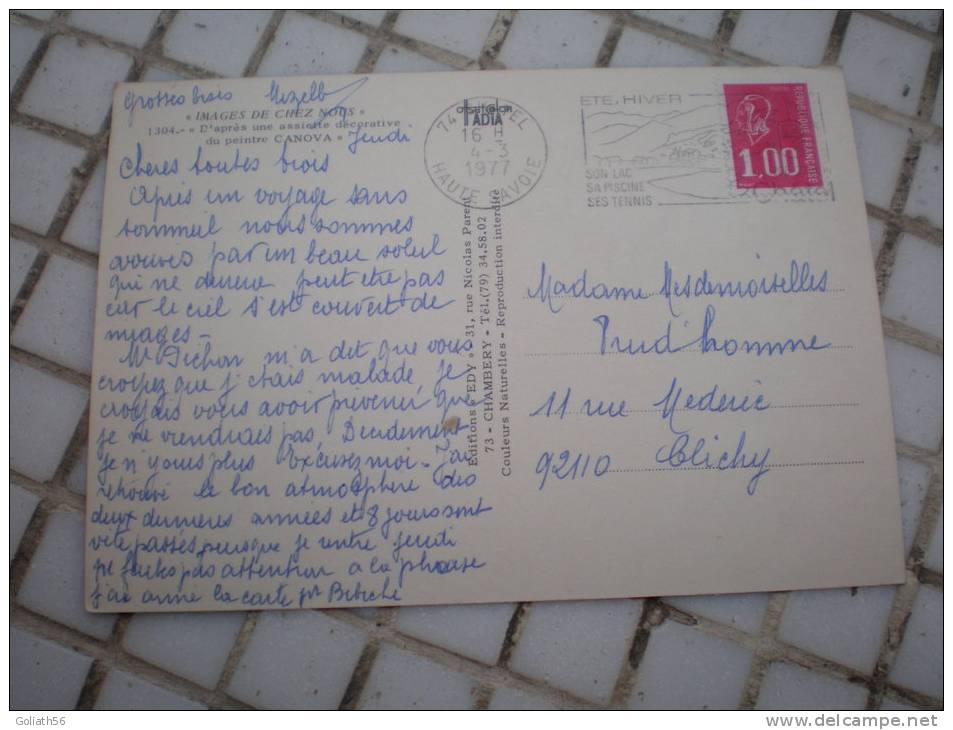 grosses bises
« IMAGES DE CHEZ NOUS »
1304.- « D'après une assiette décorative
du peintre CANOVA »
Jeudi
Cheres toutes trois
Après un voyage sans
sommeil nous sommes
arrivés par un beau soleil
qui ne durera peut etre pas
car le ciel s'est couvert de
nuages -
Mr Pichon m'a dit que vous
croyez que j'etais malade, je
croyais vous avoir prévenir que
je ne viendrais pas, Decidement
je n'y suis plus Excusez moi - J'ai
retrouvé le bon atmosphère des
deux dernieres années et 8 jours sont
vite passés puisque je rentre jeudi
ne faites pas attention a la phrase
j'ai la carte pr Bebiche
Editions " EDY " - 31, rue Nicolas Parent
73 - CHAMBERY - Tél. (79) 34.58.02
Couleurs Naturelles - Reproduction interdite
74
16 H
4-3
1977
HAUTE SAVOIE
ETE, HIVER
SON LAC
SA PISCINE
SES TENNIS
REPUBLIQUE FRANÇAISE
1,00
Madame Mesdemoiselles
Prud'homme
11 rue Mederic
92110 Clichy
Goliath56
www.delcampe.net